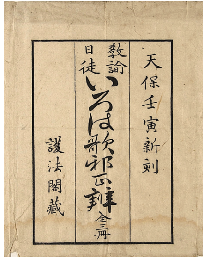 天保壬寅新刻
教諭
日徒
いろは歌邪正辨
全三冊
護法閣藏